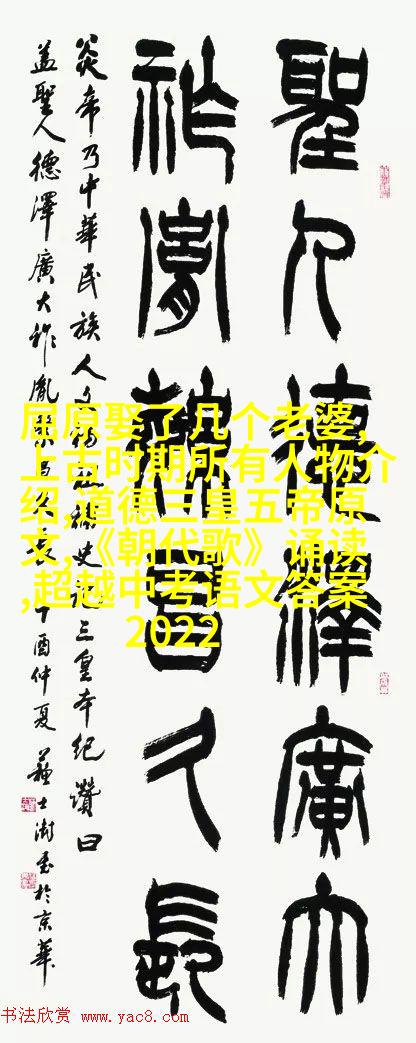 聖人德澤廣大
祚胤熾昌久長
炎帝乃中華民族人文始祖據史記三皇本紀讚曰
蓋聖人德澤廣大祚胤熾昌久長丁酉仲夏蘇士澍書於京華
屈原娶了几个老婆,
上古时期所有人物介
绍,道德三皇五帝原
文,《朝代歌》诵读
,超越中考语文答案
2022
书法欣赏 www.yac8.com